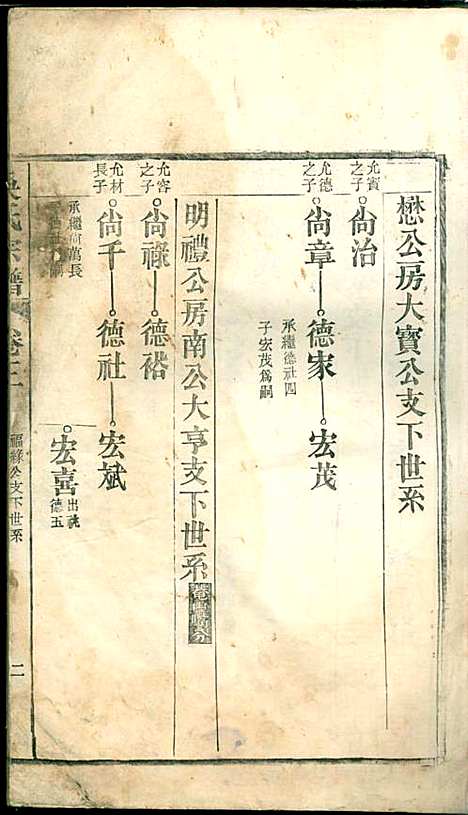 懋公房大寶公支下世系
允賓之子
尚治
允德之子
尚章 德家 宏茂
承繼德社四子宏茂爲嗣
明禮公房南公大亨支下世系
允容之子
尚祿 德裕
允材長子
尚千 德社 宏斌
承繼尚萬長
宏喜 出祧德五
氏宗譜 卷二
福緣公支下世系
二